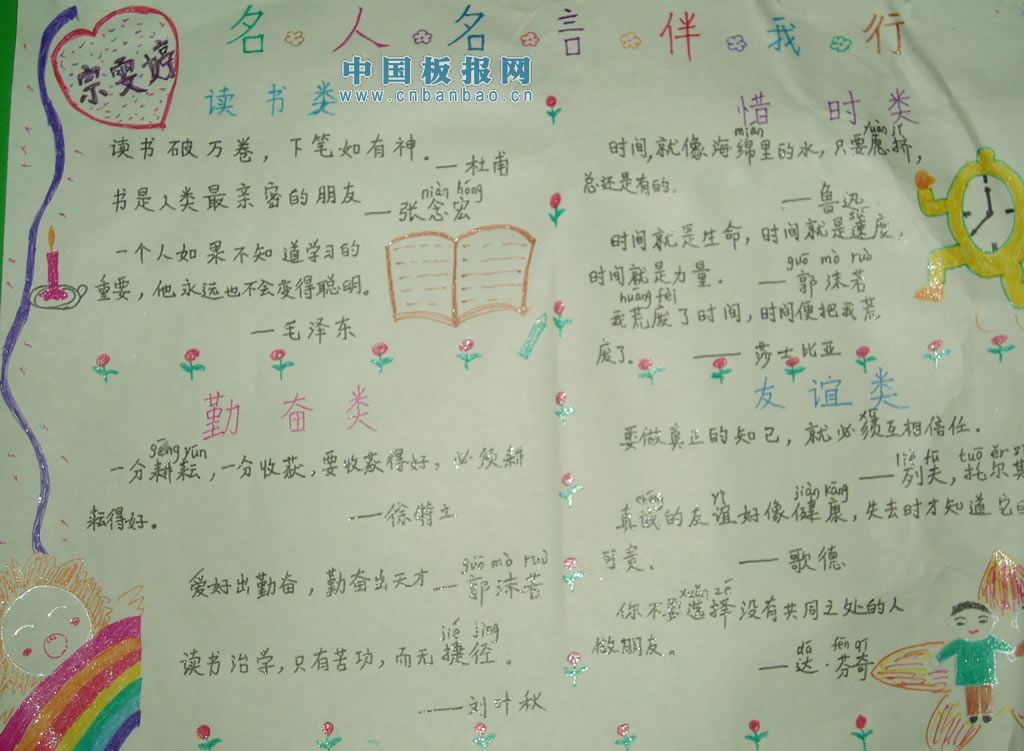 名人名言伴我行
宗雯婷
中国板报网
www.cnbanbao.cn
读书类
读书破万卷，下笔如有神。
—杜甫
书是人类最亲密的朋友
niàn hóng
—张念宏
一个人如果不知道学习的
重要，他永远也不会变得聪明。
—毛泽东
惜时类
mián yuàn jǐ
时间,就像海绵里的水，只要愿挤，
总还是有的。
—鲁迅
sù
时间就是生命，时间就是速度，
guō mò ruò
时间就是力量．—郭沫若
huāng fèi
我荒废了时间，时间便把我荒
废了。——莎士比亚
勤奋类
gēng yún
一分耕耘，一分收获，要收获得好，必须耕
耘得好。——徐特立
guō mò ruò
爱好出勤奋，勤奋出天才—郭沫若
jié jìng
读书治学，只有苦功，而无捷径。
——刘叶秋
友谊类
要做真正的知己，就必须互相信任．
liè fū tuō ěr s
——列夫，托尔斯
chéng yì jiàn kāng
真诚的友谊好像健康，失去时才知道它的
可贵．——歌德
xuǎn zé
你不要选择没有共同之处的人
做朋友。
dá fēn qí
—达·芬奇